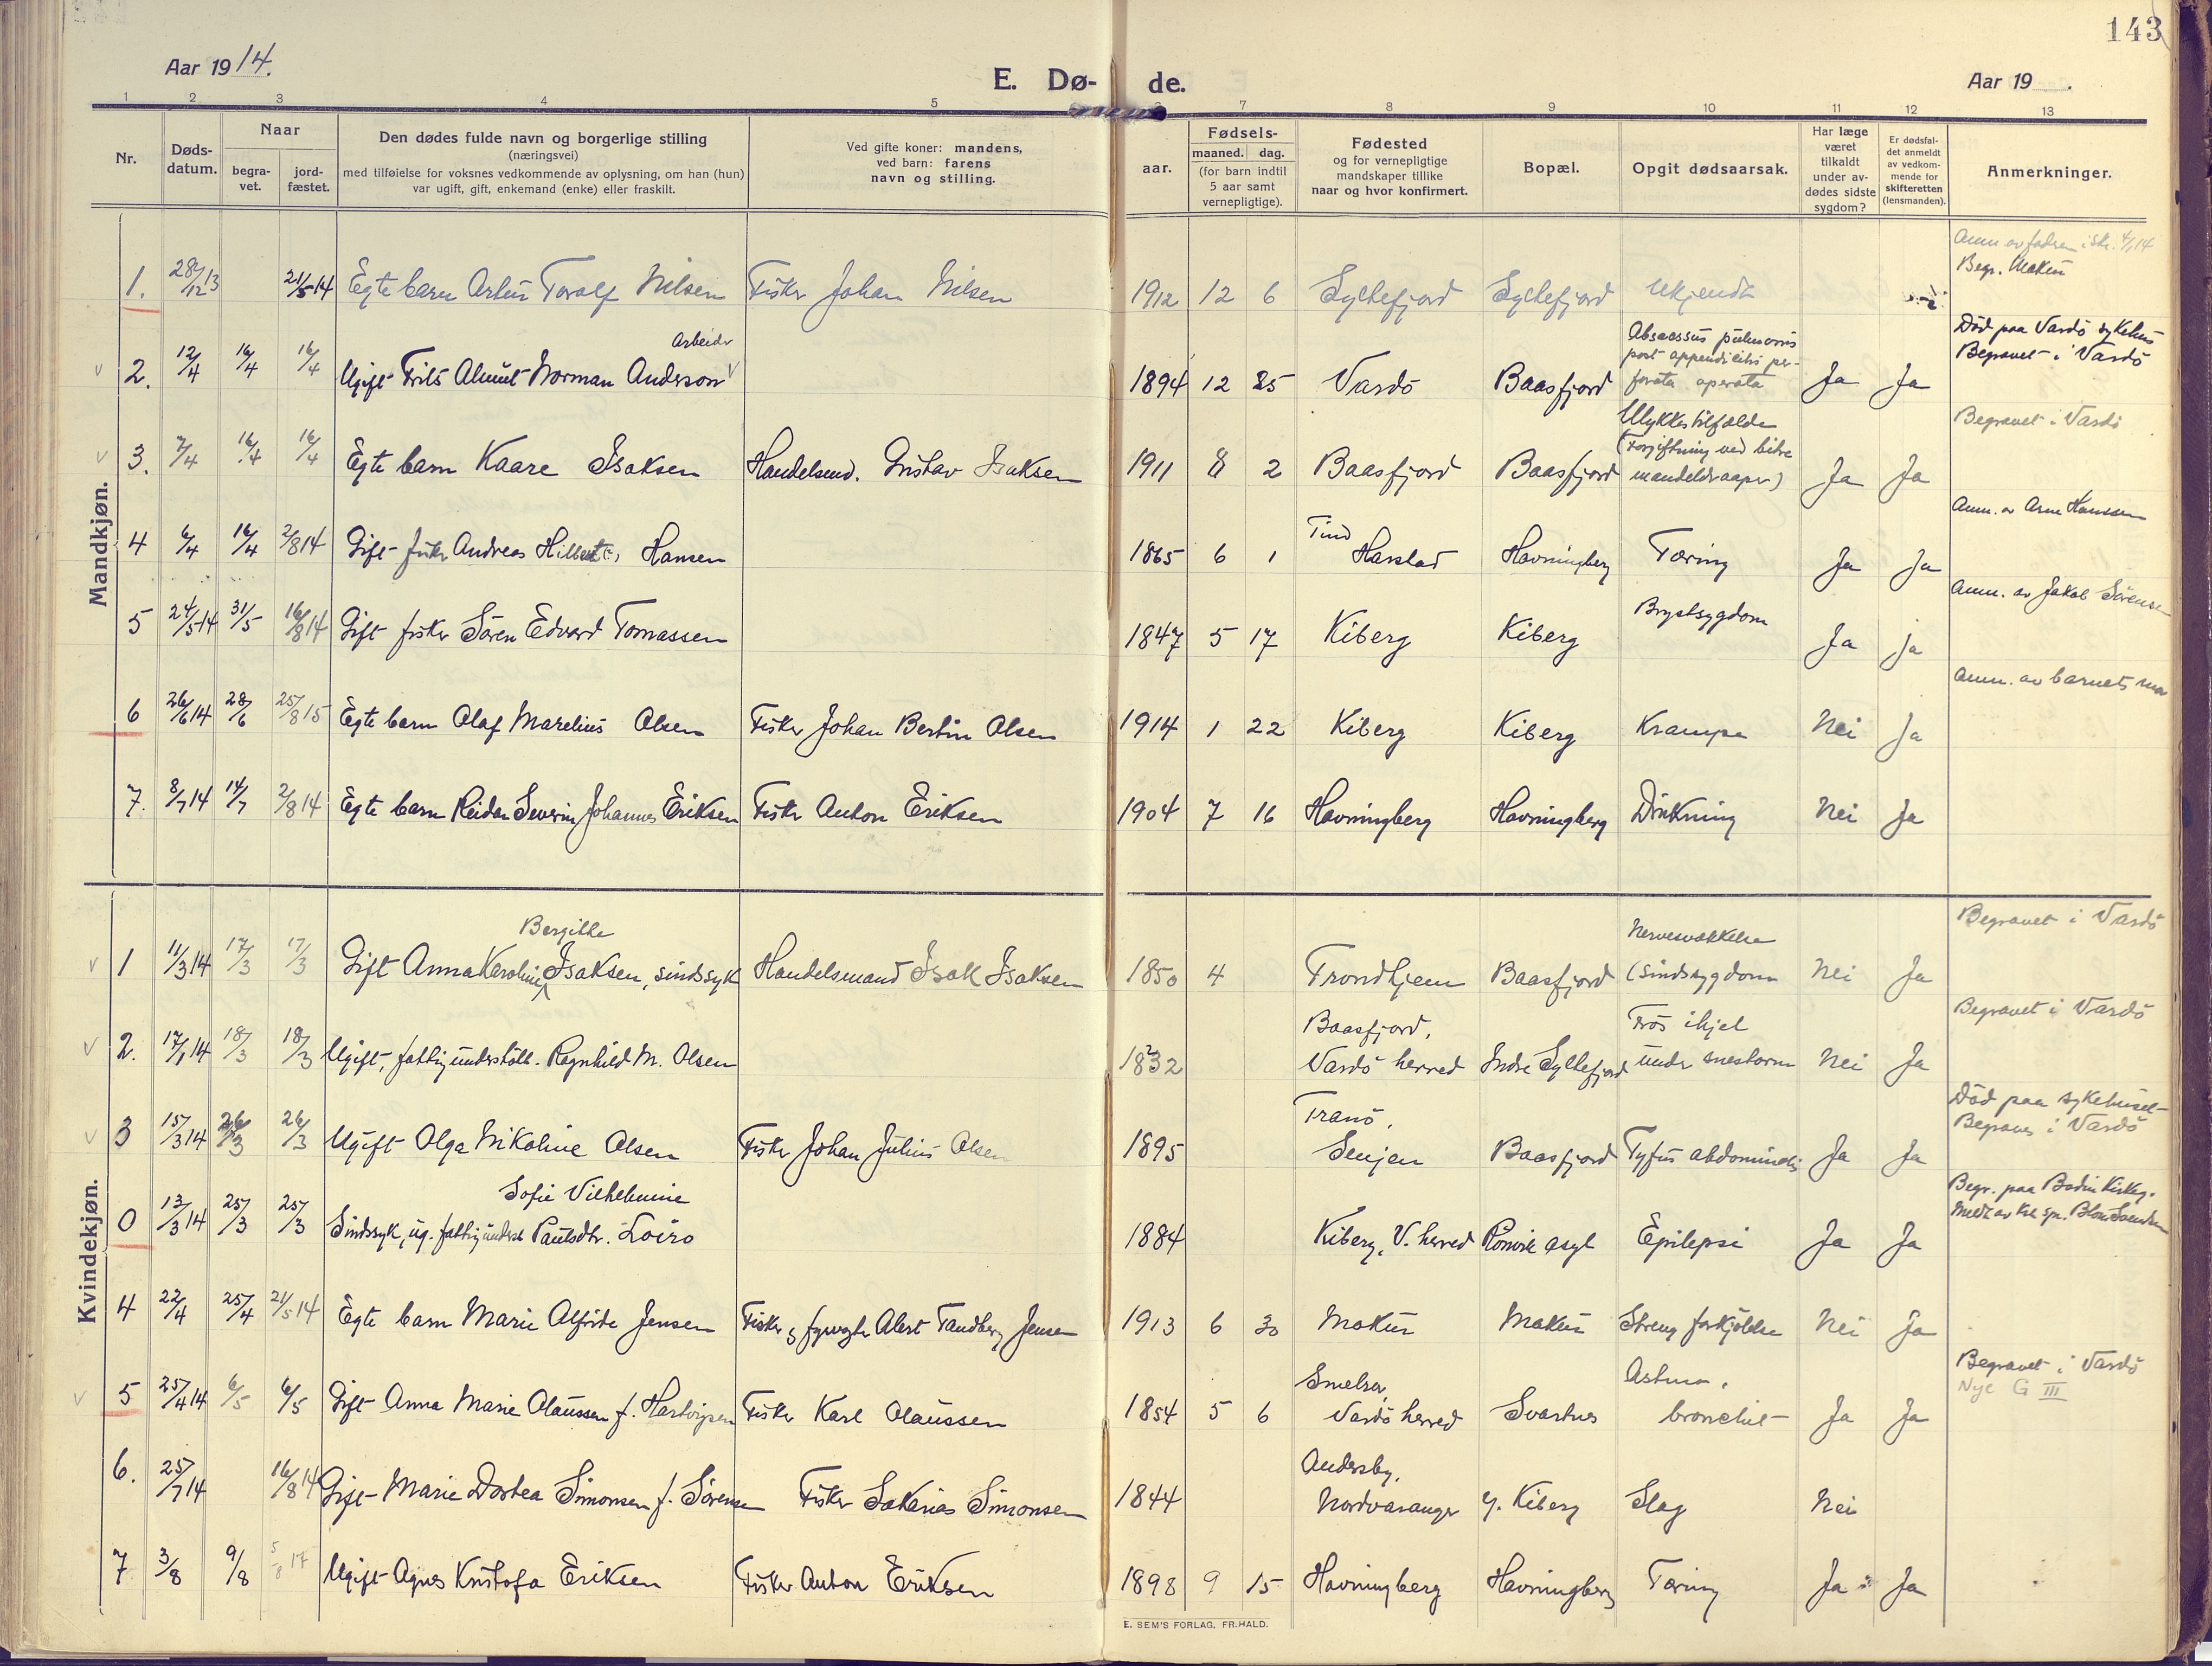 143
Aar 1914.
E. Dø- de.
Aar 19
1 2 3 4 5 6 7 8 9 10 11 12 13
Nr.
Døds-
datum.
Naar
begra-
vet.
jord-
fæstet.
Den dødes fulde navn og borgerlige stilling
(næringsvei)
med tilføielse for voksnes vedkommende av oplysning, om han (hun)
var ugift, gift, enkemand (enke) eller fraskilt.
Ved gifte koner: mandens,
ved barn: farens
navn og stilling.
Fødsels-
aar.
maaned. dag.
(for barn indtil
5 aar samt
vernepligtige).
Fødested
og for vernepligtige
mandskaper tillike
naar og hvor konfirmert.
Bopæl.
Opgit dødsaarsak.
Har læge
været
tilkaldt
under av-
dødes sidste
sygdom?
Er dødsfal-
det anmeldt
av vedkom-
mende for
skifteretten
(lensmanden).
Anmerkninger.
Mandkjøn.
Anm av fadren i skr. 4/1 14
Begr. Makur
1. 28/12 13 21/5 14 Egte barn Artur Toralf Nilsen Fisker Johan Nilsen 1912 12 6 Syltefjord Syltefjord Ukjendt
Arbeider
Absaessus pulmonis
post appendicitis per-
forata operata
Död paa Vardö sykehus
Begravet i Vardö
2. 12/4 16/4 16/4 Ugift Frits Almut Norman Anderson 1894 12 25 Vardö Baasfjord Ja Ja
Ulykkestilfælde
(Forgiftning ved bitre
mandeldraaper)
Begravet i Vardö
3. 7/4 16/4 16/4 Egte barn Kaare Isaksen Handelsmd. Gustav Isaksen 1911 8 2 Baasfjord Baasfjord Ja Ja
Anm. av Arne Hanssen
Tind
4 6/4 16/4 2/8 14 Gift fisker Andreas Hansen 1865 6 1 Harstad Havningberg Tæring Ja Ja
Anm. av Jakob Sörensen
5 24/5 14 31/5 16/8 14 Gift fisker Sören Edvard Tomassen 1847 5 17 Kiberg Kiberg Brystsygdom Ja Ja
Anm. av barnets mor
6 26/6 14 28/6 25/8 15 Egte barn Olaf Marelius Olsen Fisker Johan Bertin Olsen 1914 1 22 Kiberg Kiberg Krampe Nei Ja
7. 8/7 14 14/7 2/8 14 Egte barn Reidar Severin Johannes Eriksen Fisker Anton Eriksen 1904 7 16 Havningberg Havningberg Drukning Nei Ja
Kvindekjøn.
Bergitte
Nervesvækkelse
(Sindssygdom
Begravet i Vardö
1 11/3 14 17/3 17/3 Gift Anna Karolin Isaksen, sindssyk Handelsmand Isak Isaksen 1850 4 Trondhjem Baasfjord Nei Ja
Baasfjord,
Vardö herred
Frös ihjel
under snestorm
Begravet i Vardö
2. 17/1 14 18/3 18/3 Ugift, fattigunderstött. Ragnhild M. Olsen 1832 Indre Syltefjord Nei Ja
Tranö,
Senjen
Död paa sykehuset
Begraves i Vardö
3 15/3 14 26/3 26/3 Ugift Olga Nikoline Olsen Fisker Johan Julius Olsen 1895 Baasfjord Tyfus abdominalis Ja Ja
Sofie Vilhelmine
Begr. paa Bodin Kirkeg.
0 13/3 14 25/3 25/3 Sindssyk, ug. fattigunderst Paulsdtr. Loiro 1884 Kiberg, V. herred Rönvik asyl Epilepsi Ja Ja
4 22/4 25/4 21/5 14 Egte barn Marie Alfride Jensen Fisker og fyrvogter Alert Tandberg Jensen 1913 6 30 Makur Makur Streng forkjölelse Nei Ja
Smelror,
Vardö herred
Astma.
bronchit
Begravet i Vardö
Nye G III
5 25/4 14 6/5 6/5 Gift Anna Marie Olaussen f. Hartvigsen Fisker Karl Olaussen 1854 5 6 Svartnes Ja Ja
Andersby,
Nordvaranger
6. 25/7 14 16/8 14 Gift Marie Dortea Simonsen f. Sörensen Fisker Sakarias Simonsen 1844 Y. Kiberg Slag Nei
7 3/8 9/8 5/8 17 Ugift Agnes Kristofa Eriksen Fisker Anton Eriksen 1898 9 15 Havningberg Havningberg Tæring Ja Ja
E. SEM'S FORLAG, FR.HALD.